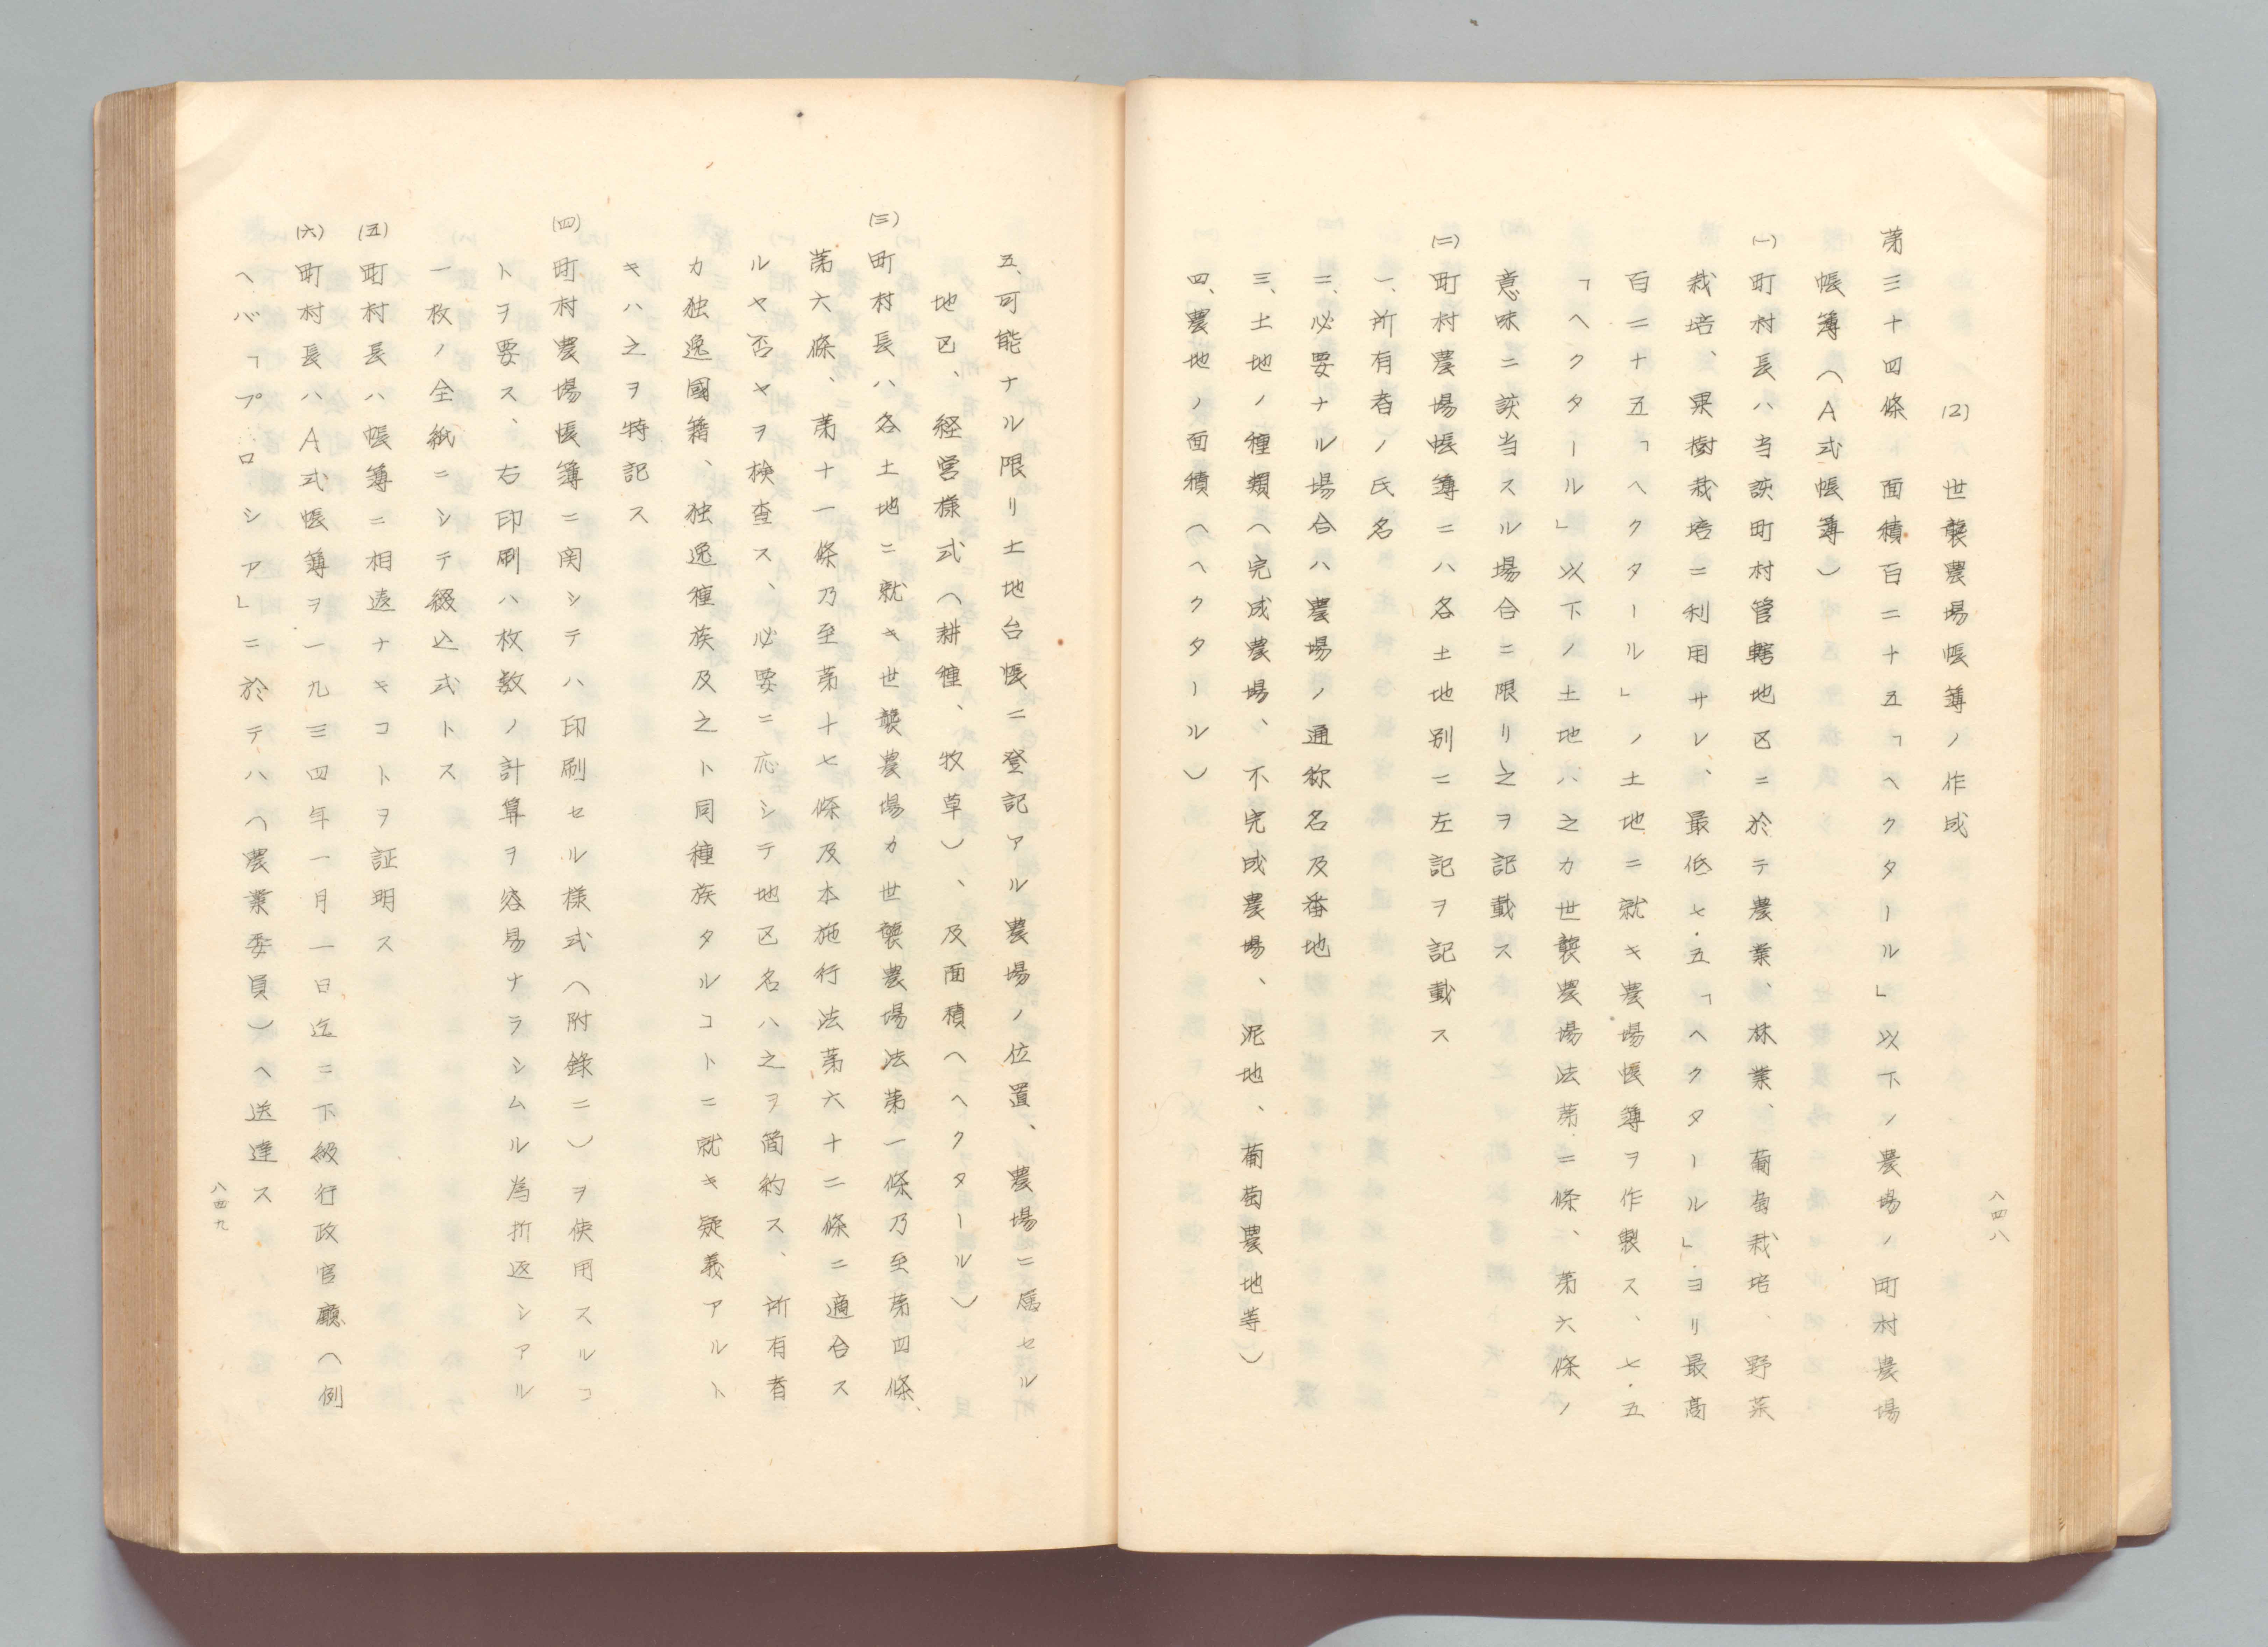 八四八
(2) 世襲農場帳簿ノ作成
第三十四條 面積百二十五「ヘクタール」以下ノ農場ノ町村農場
帳簿(A式帳簿)
(一)町村長ハ当該町村管轄地区ニ於テ農業、林業、葡萄栽培、野菜
栽培、果樹栽培ニ利用サレ、最低七・五「ヘクタール」ヨリ最高
百二十五「ヘクタール」ノ土地ニ就キ農場帳簿ヲ作製ス、七・五
「ヘクタール」以下ノ土地ハ之カ世襲農場法第二條、第六條ノ
意味ニ該当スル場合ニ限リ之ヲ記載ス
(二)町村農場帳簿ニハ各土地別ニ左記ヲ記載ス
一、所有者ノ氏名
二、必要ナル場合ハ農場ノ通称名及番地
三、土地ノ種類(完成農場、不完成農場、泥地、葡萄農地等)
四、農地ノ面積(ヘクタール)
五、可能ナル限リ土地台帳ニ登記アル農場ノ位置、農場ニ属セル
地区、経営様式(耕種、牧草)、及面積(ヘクタール)
(三)町村長ハ各土地ニ就キ世襲農場カ世襲農場法第一條乃至第四條、
第六條、第十一條乃至第十七條及本施行法第六十二條ニ適合ス
ルヤ否ヤヲ検査ス、必要ニ応シテ地区名ハ之ヲ簡約ス、所有者
カ独逸國籍、独逸種族及之ト同種族タルコトニ就キ疑義アルト
キハ之ヲ特記ス
(四)町村農場帳簿ニ関シテハ印刷セル様式(附錄二)ヲ使用スルコ
トヲ要ス、右印刷ハ枚数ノ計算ヲ容易ナラシムル為折返シアル
一枚ノ全紙ニシテ綴込式トス
(五)町村長ハ帳簿ニ相違ナキコトヲ証明ス
(六)町村長ハA式帳簿ヲ一九三四年一月一日迄ニ下級行政官廳(例
ヘバ「プロシア」ニ於テハ(農業委員)ヘ送達ス
八四九